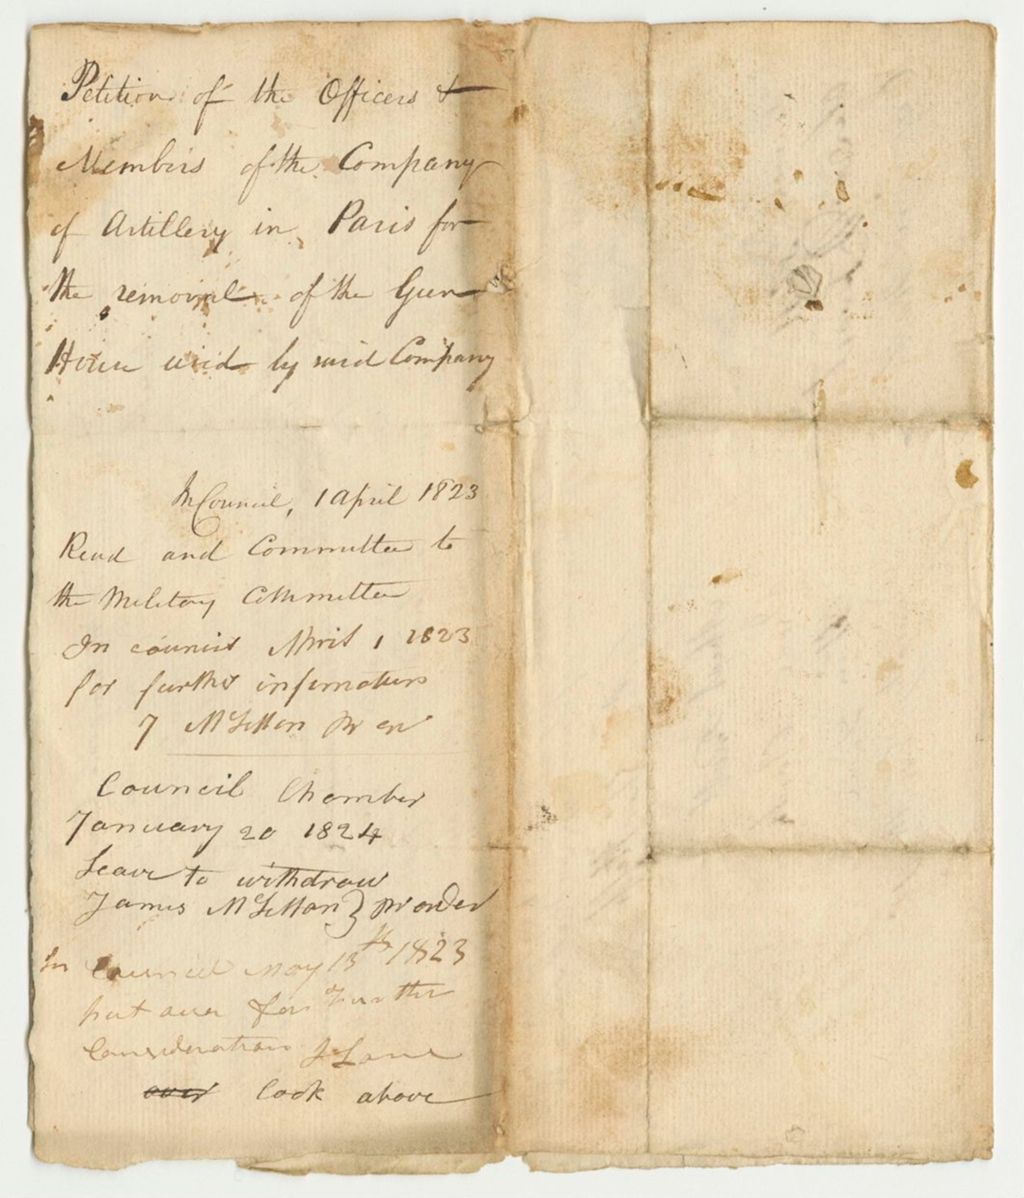 Petition of the Officers &
Members of the Company
of Artillery in Paris for
the removal of the Gun
House used by said Company
In Council, 1 April 1823
Read and Committee to
the Military Committee
In council April 1 1823
for further information
Council Chamber
January 20 1824
Leave to withdraw
James McLellan } pr order
In Council May 13th 1823
put over for Further
Consideration J Lane
over look above